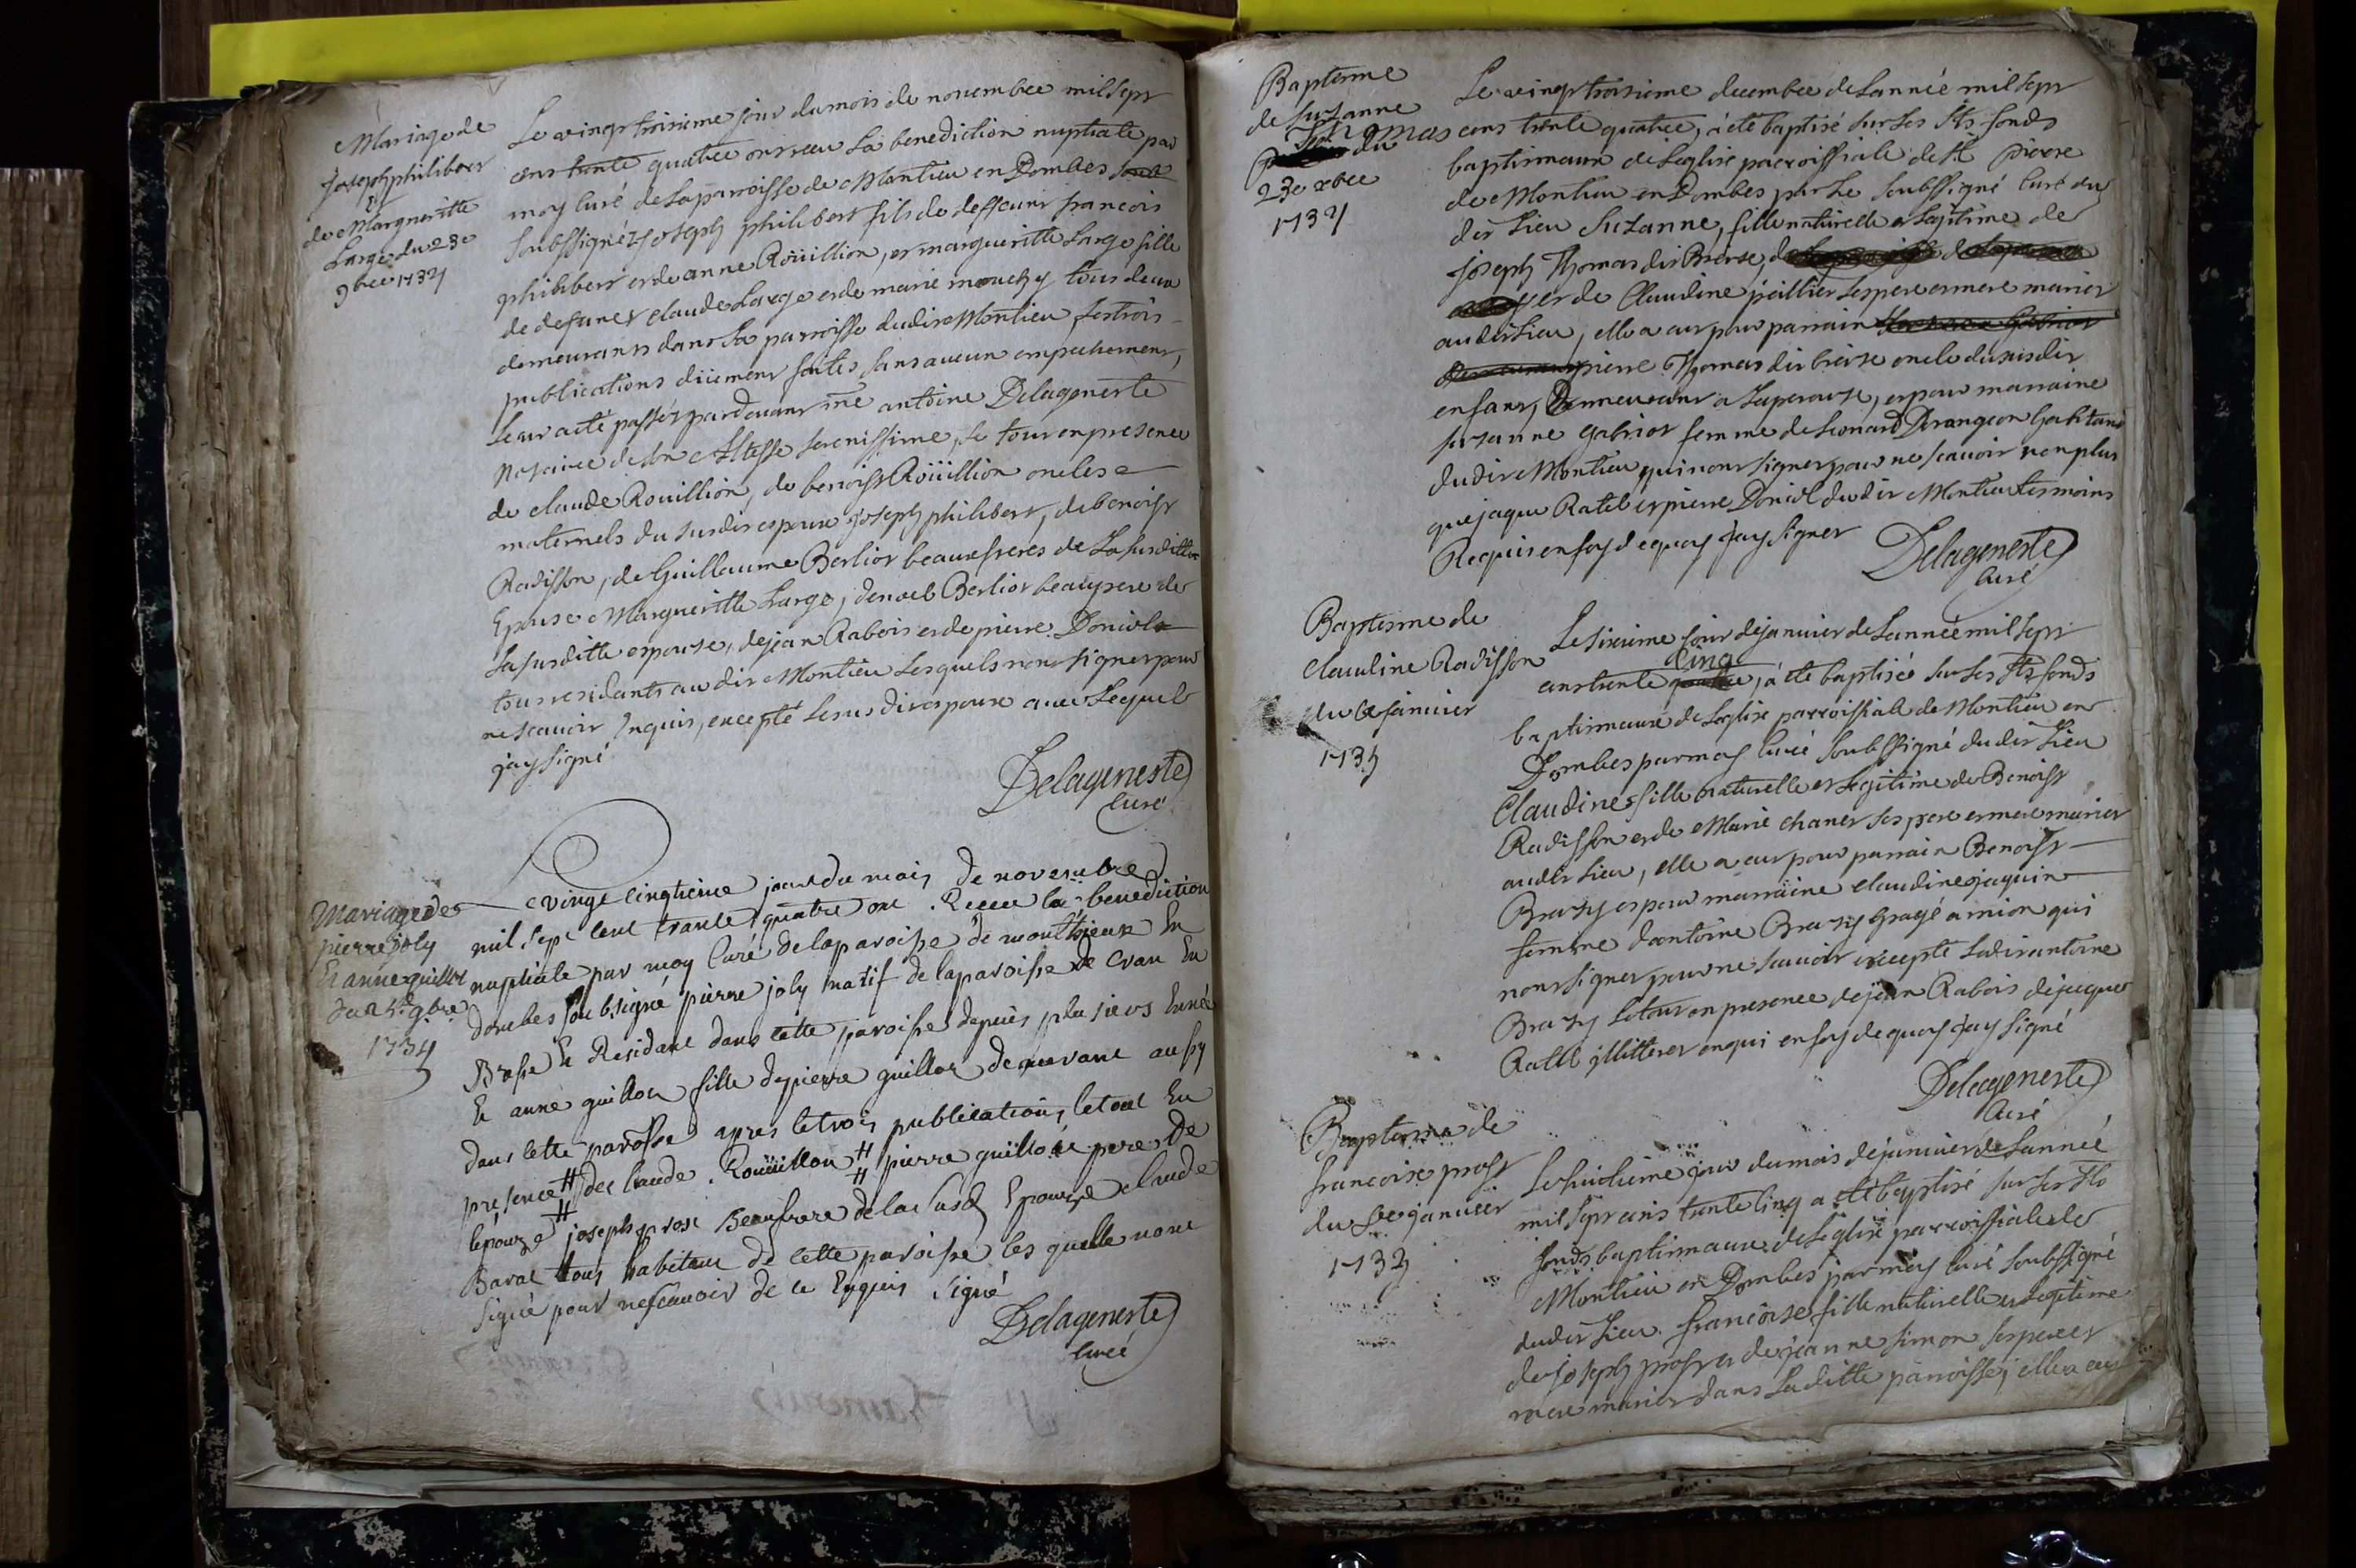 Mariage de
joseph philibert
et
de Margueritte
Large du 23e
9bre 1734
Le vingt troisieme jour du mois de novembre mil sept
cens trente quatre ont receu La benediction nuptiale par
moy Curé de La parroisse de Montieu en Dombes
soubssignéz joseph philibert fils de deffeunt francois
philibert et de anne Roüillion, et margueritte Large fille
de defunct claude Large et de marie mouchy tous deux
demeurants dans La parroisse dudit Montieu Les trois
publications düement faites sans aucun empechement,
Leur acte passéz pardevant me antoine Delageneste
Notaire de son Altesse serenissime, Le tout en presence
de claude Roüillion, de benoist Roüillion oncles
maternels du susdit espoux joseph philibert, de benoist
Radisson, de Guillaume Berliot beauxfreres de La susditte
Epouse Margueritte Large, de noel Berliot beaupere de
La susditte espouse, de jean Rabois et de pierre Doniol
tous residants audit Montieu Lesquels nont signer pour
ne scavoir Enquis, excepté Le susdit espoux avec Lequel
j'ay signé
Delageneste
Curé
Mariage de
pierre joly
Et anne guillot
du 25e 9bre
1734
Le vingt cinqtieme jour du mois de novembre
mil sept cent trante quatre ont Receu la benediction
nuptiale par moy Curé de la paroisse de monthieux En
dombes soubsigné pierre joly natif de la paroisse de Cran En
Brasse Et Residant dans cette paroisse depuis plusieurs Année
Et anne guillot fille de pierre guillot demeurant aussy
dans cette paroisse apres le trois publications, le tout En
presence de Claude Roüillon pierre guillot pere De
lepouze joseph prost Beaufrere de la Susd Epouze claude
Barat tous habitant de cette paroisse les quelle nont
signé pour ne scavoir de ce Enquis signé
Delageneste
Curé
Baptesme
de suzanne
Thomas
du
23e xbre
1734
Le vingt troisieme decembre de Lannée mil sept
cens trente quatre, a été baptisé sur Les Sts fonds
baptismaux de Leglise parroissiale de St pierre
de Montieu en Dombes par Le soubssigné Curé du
dit Lieu suzanne, fille naturelle et Legitime de
joseph Thomas dit Breise,
et de Claudine paillier ses pere et mere mariez
audit Lieu, elle a eut pour parrain
pierre Thomas dit breise oncle du susdit
enfant, Demeurant a Laperouze, et pour marraine
suzanne gabriot femme de Leonard Derangeon habitant
dudit Montieu qui nont signer pour ne scavoir non plus
que jaque Ratel et pierre Doniol dudit Montieu tesmoins
Requis en foy de quoy j'ay signer
Delageneste
Curé
Baptesme de
claudine Radisson
du 6e janvier
1735
Le sixieme jour de janvier de Lannée mil sept
cens trente cinq, a été baptisée sur Les Sts fonds
baptismaux de Leglise parroissiale de Montieu en
Dombes par moy Curé soubssigné dudit Lieu
Claudine fille naturelle et Legitime de Benoist
Radisson et de Marie chanet ses pere et mere mariez
audit Lieu, elle a eut pour parrain Benoist
Brazy et pour marraine claudine jaquin
femme d'antoine Brazy qui
nont signer pour ne scavoir excepté Ledit antoine
Brazy Le tout en presence de jean Rabois de jaques
Ratel illitterez enquis en foy de quoy j'ay signé
Delageneste
Curé
Baptesme de
francoise prost
du 8e janvier
1735
Le huitieme jour du mois de janvier de Lannée
mil sept cens trente cinq a été baptisé sur Les Sts
fonds baptismaux de Leglise parroissiale de
Montieu en Dombes par moy Curé soubssigné
dudit Lieu francoise fille naturelle et Legitime
de joseph prost et de jeanne simon ses pere et
mere mariez dans Laditte parroisse, elle a eut